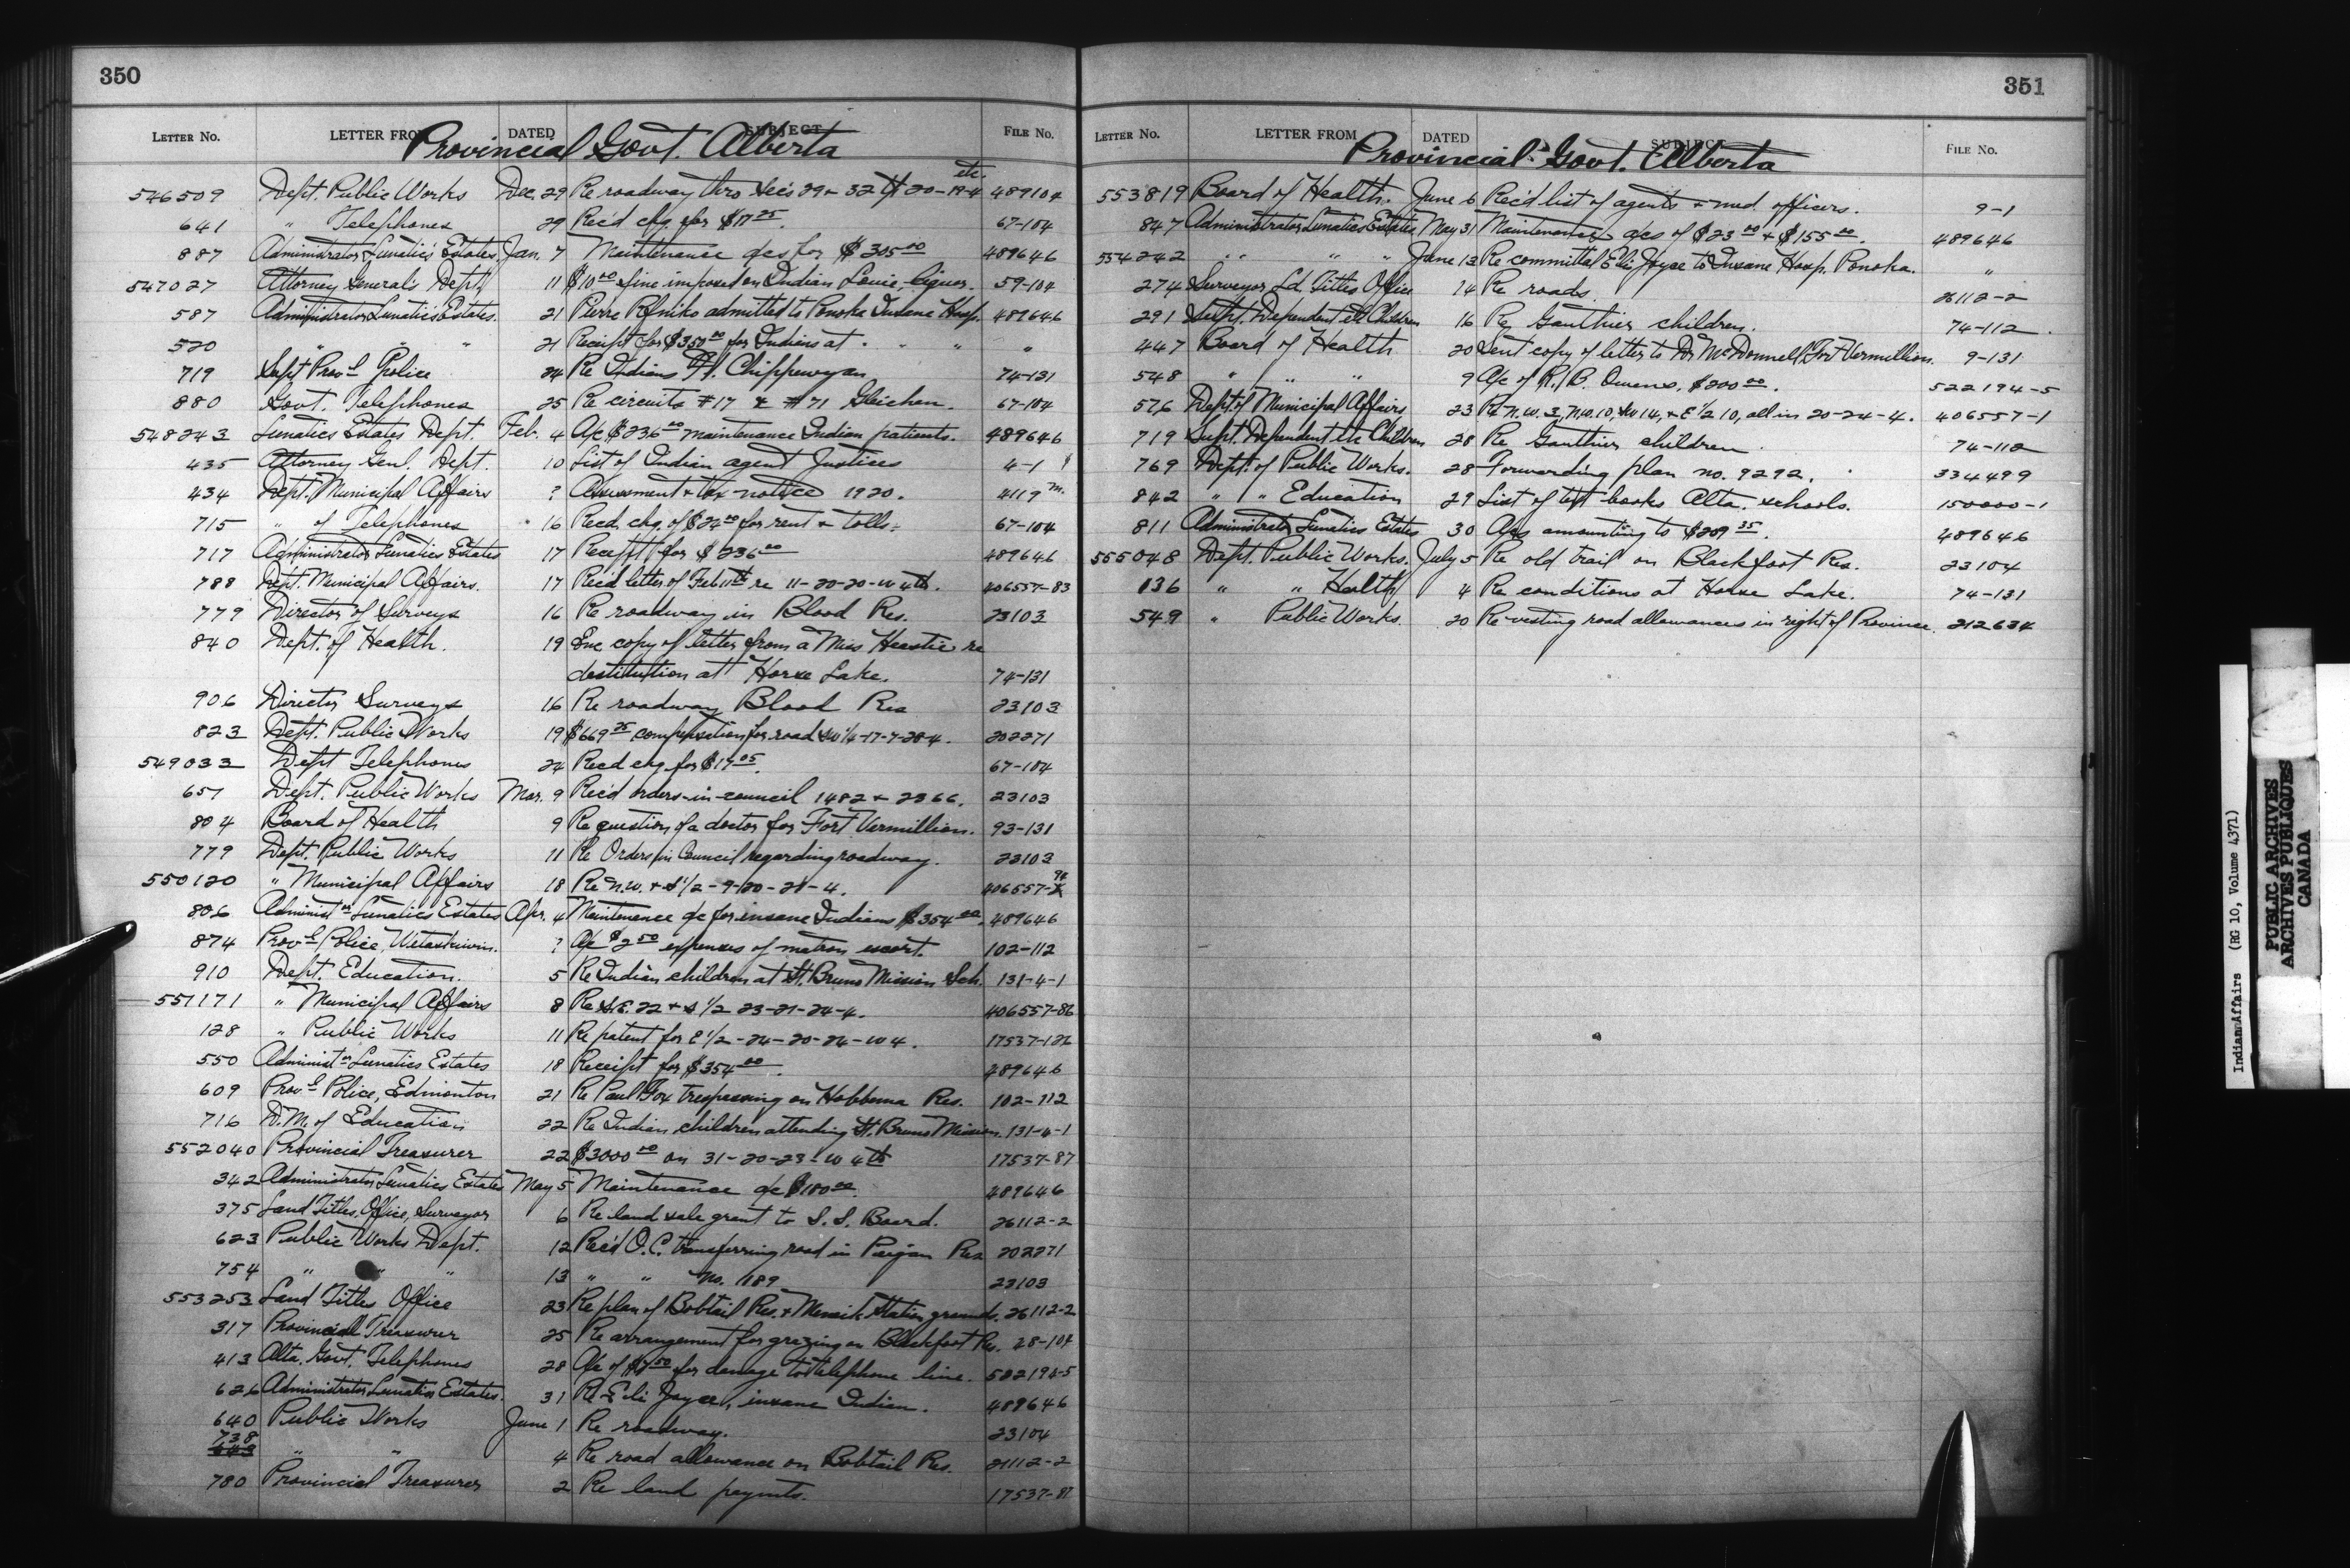 350
LETTER No. LETTER FROM DATED SUBJECT FILE No.
Provincial Govt. Alberta
etc.
546509 Dept. Public Works Dec. 29 Re roadway thro Sec's 29 + 32 Tp 20-19-4 489104
641 " Telephones 29 Rec'd chq. for $17 25. 67-104
887 Administrator Lunatics Estates Jan. 7 Maintenance a/cs for $205 00 489646
547027 Attorney General's Dept. 11 $10 00 fine imposed on Indian Louie, liquor. 59-104
587 Administrator Lunatics Estates. 21 Pierre admitted to Ponoka Insane Hosp. 489646
520 " " " 21 Receipt for $351 00 for Indians at " " " "
719 Supt Provl Police 24 Re Indians Ft. Chippewyan 74-131
880 Govt. Telephones 25 Re circuits #17 & #71 Gleichen. 67-104
548243 Lunatics Estates Dept. Feb. 4 A/c $236 00 maintenance Indian patients. 489646
435 Attorney Genl. Dept. 10 List of Indian agent Justices 4-1
434 Dept. Municipal Affairs ? Assessment & tax notice 1920. 4119 m.
715 " of Telephones 16 Recd. chq. of $22 00 for rent & tolls. 67-104
717 Administrator Lunatics Estates 17 Receipt for $236 00 489646
788 Dept. Municipal Affairs. 17 Rec'd letter of Feb 11th re 11-20-20-W 4th. 406557-83
779 Director of Surveys 16 Re roadway in Blood Res. 23103
840 Dept. of Health. 19 Enc copy of letter from a Miss Heastie re
destitution at Horse Lake. 74-131
906 Director Surveys 16 Re roadway Blood Res 23103
823 Dept. Public Works 19 $669 25 compensation for road SW 1/4-17-7-28-4. 202271
549033 Dept Telephones 24 Recd chq for $17 05. 67-104
651 Dept. Public Works Mar. 9 Rec'd orders-in-council 1482 + 2366. 23103
804 Board of Health 9 Re question of a doctor for Fort Vermillion. 93-131
779 Dept. Public Works 11 Re Orders in Council regarding roadway. 23103
550120 " Municipal Affairs 18 Re N.W. + S 1/2 - 9-20-21-4. 406557-94
806 Administ or Lunatics Estates Apr. 4 Maintenance a/c for insane Indians $354 00. 489646
874 Provl Police, Wetaskiwin. ? A/c $2 50 expenses of matron escort. 102-112
910 Dept. Education. 5 Re Indian children at St. Bruno Mission Sch. 131-4-1
551171 " Municipal Affairs 8 Re S.E. 22 + S 1/2 23-21-24-4. 406557-86
128 " Public Works 11 Re patent for E 1/2-24-20-24-W 4.
550 Administ or Lunatics Estates 18 Receipt for $354 00. 489646
609 Provl Police, Edmonton 21 Re Paul Fox trespassing on Hobbema Res. 102-112
716 D.M. of Education 22 Re Indian children attending St. Bruno Mission. 131-4-1
552040 Provincial Treasurer 22 $3000 00 on 31-20-23-W 4th 17537-87
342 Administrator Lunatics Estates May 5 Maintenance a/c $180 00. 489646
375 Land Titles Office, Surveyor 6 Re land sale grant to S. S. Board. 26112-2
623 Public Works Dept. 12 Rec'd O.C. transferring road in Peigan Res 202271
754 " " " 13 " " No. 189 23103
553253 Land Titles Office 23 Re plan of Bobtail Res. + Menaik Station grounds. 26112-2
317 Provincial Treasurer 25 Re arrangement for grazing on Blackfoot Res. 28-104
413 Alta. Govt. Telephones 28 A/c of for damage to telephone line. 522194-5
626 Administrator Lunatics Estates. 31 Re Eli Joyce, insane Indian. 489646
640 Public Works June 1 Re roadway. 23104
738
643 " " 4 Re road allowance on Bobtail Res. 21112-2
780 Provincial Treasurer 2 Re land paymts. 17537-87
351
LETTER No. LETTER FROM DATED SUBJECT FILE No.
Provincial Govt. Alberta
553819 Board of Health. June 6 Rec'd list of agents & med officers. 9-1
847 Administrator Lunatics Estates May 31 Maintenance a/cs of $23 00 + $155 00. 489646
554242 " " " June 13 Re committal Eli Joyce to Insane Hosp. Ponoka. "
274 Surveyor Ld. Titles Office 14 Re roads. 26112-2
291 Supt. Dependent etc Children 16 Re Gauthier children. 74-112.
447 Board of Health 20 Sent copy of letter to Dr McDonnell, Fort Vermillion. 9-131
548 " " " 9 A/c of R. B. Owens, $200 00. 522194-5
576 Dept. of Municipal Affairs 23 Re N.W. 3, N.W. 10, SW 14, + E 1/2 10, all in 20-24-4. 406557-1
719 Supt. Dependent etc Children 28 Re Gauthier children 74-112
769 Dept. of Public Works. 28 Forwarding plan no. 9292. 334499
842 " " Education 29 List of text books Alta. schools. 150000-1
811 Administrator Lunatics Estates 30 A/cs amounting to $289 35. 489646
555048 Dept. Public Works. July 5 Re old trail on Blackfoot Res. 23104
136 " " Health 4 Re conditions at Horse Lake. 74-131
549 " Public Works. 20 Re vesting road allowances in right of Province. 212634
Indian Affairs (RG 10, Volume 4371)
PUBLIC ARCHIVES
ARCHIVES PUBLIQUES
CANADA